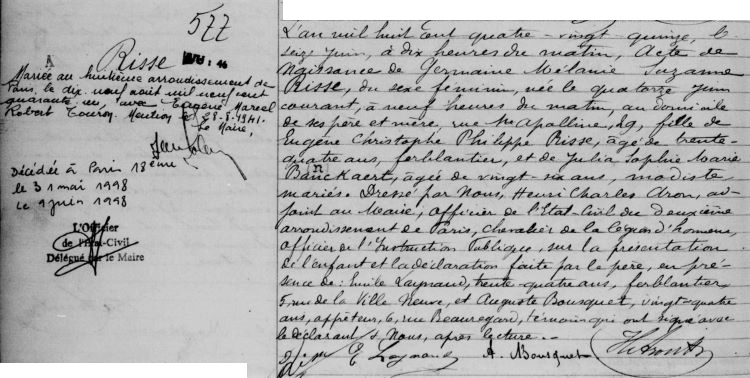 577
A
Risse
Mariée au huitième arrondissement de
Paris, le dix neuf août mil neuf cent
quarante un, avec Eugène Marcel
Robert Touron. Mention le 28-8-1941.
Le Maire,
Décédée à Paris 18ème
le 31 mai 1998
Le 9 juin 1998
L'Officier
de l'Etat-Civil
Délégué par le Maire
L'an mil huit cent quatre-vingt quinze, le
seize Juin, à dix heures du matin, Acte de
Naissance de Germaine Mélanie Suzanne
Risse, du sexe féminin, née le quatorze Juin
courant, à neuf heures du matin, au domicile
de ses père et mère, rue Ste Apolline, 29, fille de
Eugène Christophe Philippe Risse, âgé de trente-
quatre ans, ferblantier, et de Julia Sophie Marie
Banckaert, âgée de vingt-six ans, modiste
mariés. Dressé par Nous, Henri Charles Aron, ad-
joint au Maire, officier de l'Etat-Civil du deuxième
arrondissement de Paris, chevalier de la légion d'honneur,
officier de l'Instruction Publique, sur la présentation
de l'enfant et la déclaration faite par le père, en pré-
sence de : Emile Laynaud, trente-quatre ans, ferblantier
5, rue de la Ville Neuve, et Auguste Bousquet, vingt-quatre
ans, apprêteur, 6, rue Beauregard, témoins qui ont signé avec
le déclarant & Nous, après lecture.
E Laynaud A. Bousquet